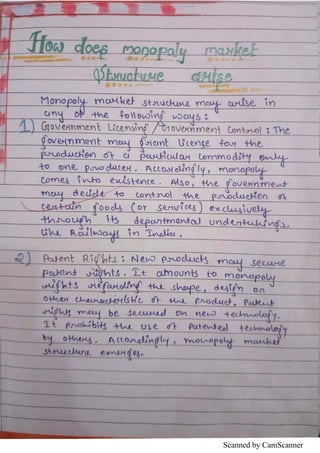 How does monopoly market
Structure arise
Monopoly market structure may arise in
any of the following ways :
1) Government Licensing / Government Control : The
government may grant license for the
production of a particular commodity only
to one producer. Accordingly, monopoly
comes into existence. Also, the government
may decide to control the production of
certain goods (or services) exclusively
through its departmental undertakings,
like Railways in India.
2) Patent Rights : New products may secure
patent rights. It amounts to monopoly
rights regarding the shape, design or
other characteristic of the product. Patent
rights may be secured on new technology.
It prohibits the use of Patented technology
by others. Accordingly, monopoly market
structure emerges.
Scanned by CamScanner